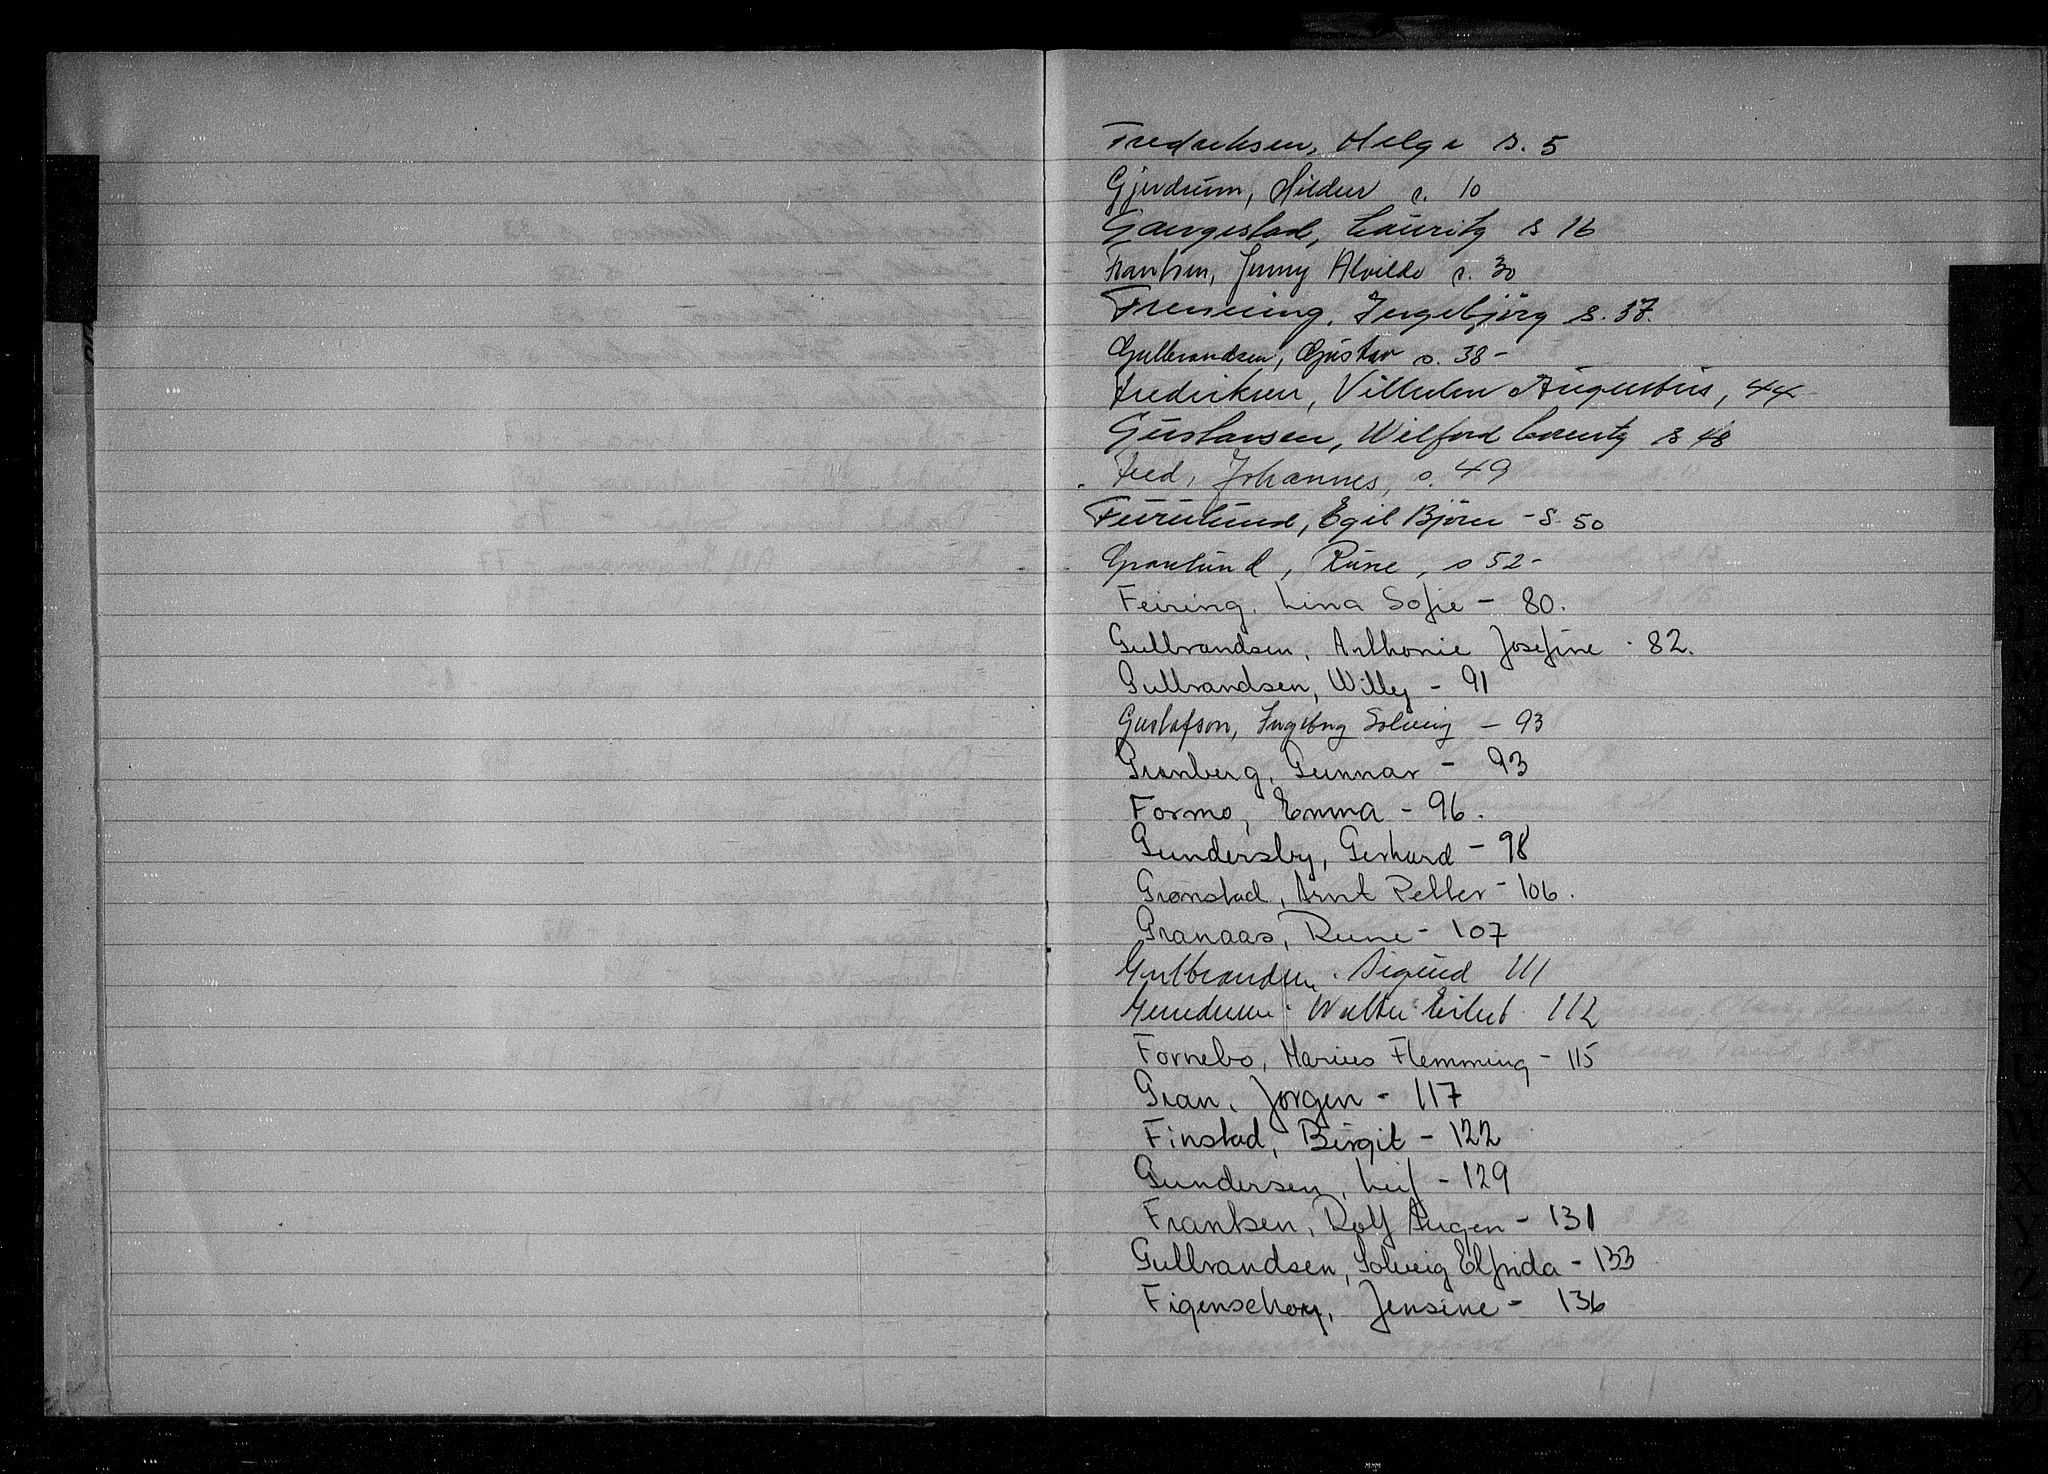 Fredriksen, Helge s. 5
Gjerdrum, Hildur s. 10
Gangestad, Lauritz s 16
Frantsen, Jenny Alvilde s. 30
Frenning, Ingebjörg s. 37.
Gulbrandsen, Gustav s. 38 -
Fredriksen, Vilhelm Augustius, 44
Gustavsen, Wilford Lorentz s 48
Fred, Johannes, s. 49
Furulund, Egil Björn - s. 50
Granlund, Rune, s 52 -
Feiring, Lina Sofie - 80.
Gulbrandsen, Anthonie Josefine - 82.
Gulbrandsen, Willy - 91
Gustafson, Ingeborg Solveig - 93
Granberg, Gunnar - 93
Formo, Emma - 96.
Gundersby, Gerhard - 98
Grønstad, Arnt Petter - 106.
Granaas, Rune - 107
Gulbrandsen. Sigurd 111
Walter Eilert 112
Fornebo, Marius Flemming - 115
Gran, Jørgen - 117
Finstad, Birgit - 122
Gundersen, Leif - 129
Frantsen, Rolf Augen - 131
Gulbrandsen, Solveig Elfrida - 133
Figenschou, Jensine - 136